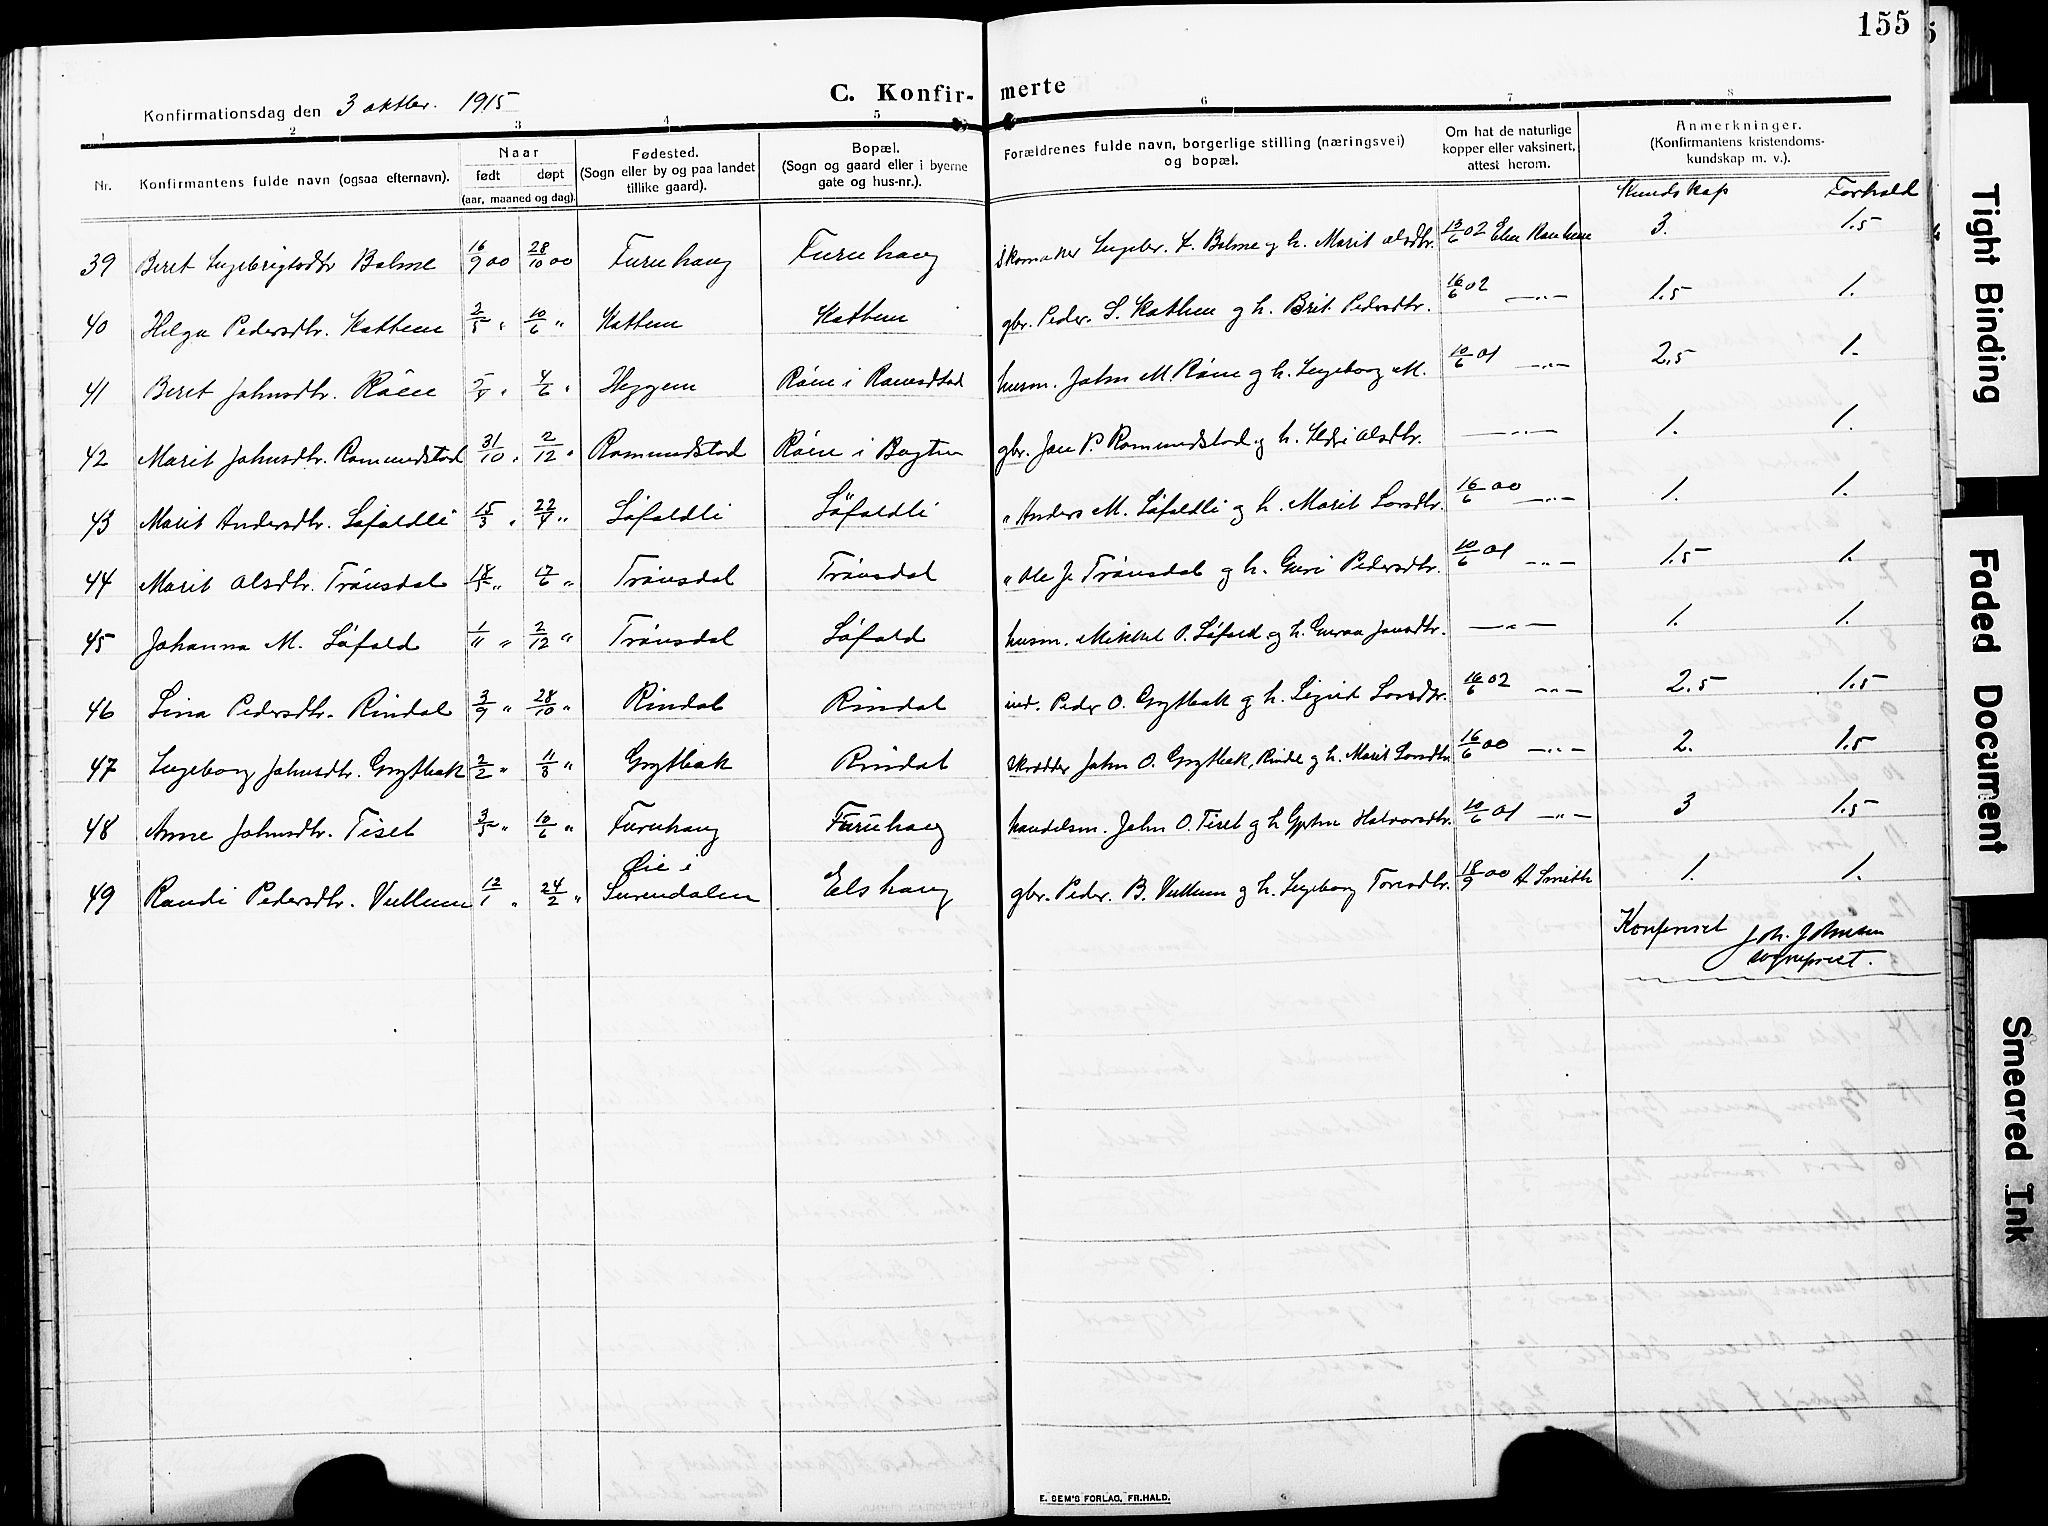 155
Konfirmationsdag den 3 oktbr. 1915
C. Konfir- merte
1 2 3 4 5 6 7 8
Nr.
Konfirmantens fulde navn (ogsaa efternavn).
Naar
født døpt
(aar, maaned og dag).
Fødested.
(Sogn eller by og paa landet
tillike gaard).
Bopæl.
(Sogn og gaard eller i byerne
gate og hus-nr.).
Forældrenes fulde navn, borgerlige stilling (næringsvei)
og bopæl.
Om hat de naturlige
kopper eller vaksinert,
attest herom.
Anmerkninger.
(Konfirmantens kristendoms-
kundskap m. v.).
Kundskap Forhold
39 Beret Ingebrigtsdtr Bolme 16/9 00 28/10 00 Furuhaug Furuhaug Skomaker Ingebr. Bolme og h. Marit Olsdtr. 02 3. 1.5
40 Helga Pedersdtr. Kattem 2/5 " 10/6 " Kattem Kattem gbr. Peder S. Kattem og h. Brit Pedersdtr. 16/6 02 —"— 1.5 1.
41 Beret Johnsdtr. Røen " 4/6 " Heggem Røen i Romundstad husm. John M. Røen og h. Ingeborg M. 10/6 01 —"— 2.5 1.
42 Marit Johnsdtr. Romundstad 31/10 " 2/12 " Romundstad Røen i gbr. Jon P. Romundstad og h. Olsdtr. —"— 1. 1.
43 Marit Andersdtr. Løfaldli 15/3 " 22/4 " Løfaldli Løfaldli " Anders M. Løfaldli og h. Marit Larsdtr. 16/6 00 —"— 1. 1.
44 Marit Olsdtr. Trønsdal " 17/6 " Trønsdal Trønsdal " Ole J. Trønsdal og h. Guri Pedersdtr. 10/6 01 —"— 1.5 1.
45 Johanna M. Løfald 1/11 " 2/12 " Trønsdal Løfald husm. Mikkel O. Løfald og h. Guraa Jonsdtr. —"— 1. 1.
46 Lina Pedersdtr. Rindal 3/9 " 28/10 " Rindal Rindal ind. Peder O. Grytbak og h. Sigrid Larsdtr. 16/6 02 —"— 2.5 1.5
47 Ingeborg Johnsdtr. Grytbak 2/2 " 11/3 " Grytbak Rindal Skrædder John O. Grytbak, Rindal og h. Marit Larsdtr. 16/6 00 —"— 2. 1.5
48 Anne Johnsdtr. Tiset 3/5 " 10/6 " Furuhaug Furuhaug handelsm. John O. Tiset og h. Halvorsdtr. 10/6 01 —"— 3 1.5
49 Randi Pedersdtr. Vullum 12/1 " 24/2 " Øie i Surendalen Elshaug gbr. Peder B. Vullum og h. Ingeborg Toresdtr. 18/9 00 A Smith 1. 1.
Konferert Joh. Johnsen
sogneprest.
E. SEM'S FORLAG, FR.HALD.
Tight Binding
Faded Document
Smeared Ink